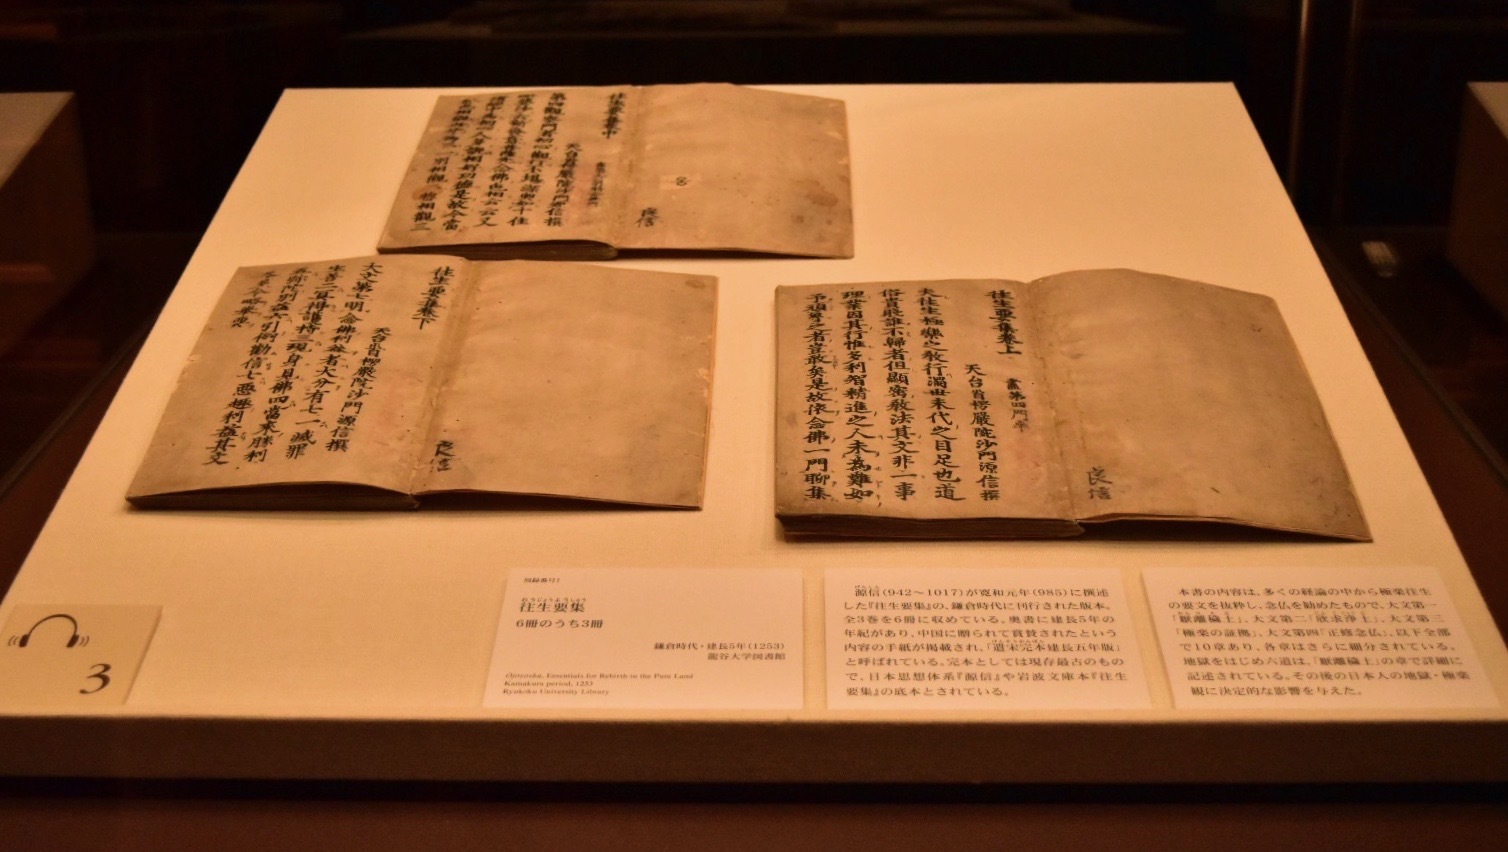 往生要集卷中
天台首楞嚴院沙門源信撰
良信
往生要集卷下
天台首楞嚴院沙門源信撰
大文第七明念佛利益者大分有七一滅罪
生善二冥得護持三現身見佛四當來勝利
五弥陀別益六引例勸信七惡趣利益其文
良信
往生要集卷上
盡第四門半
天台首楞嚴院沙門源信撰
夫往生極樂之教行濁世末代之目足也道
俗貴賤誰不歸者但顯密教法其文非一事
理業因其行惟多利智精進之人未為難如
予頑魯之者豈敢矣是故依念佛一門聊集
良信
3
おうじょうようしゅう
往生要集
6冊のうち3冊
鎌倉時代・建長5年(1253)
龍谷大学図書館
Ōjōyōshū, Essentials for Rebirth in the Pure Land
Kamakura period, 1253
Ryukoku University Library
げんしん
源信(942〜1017)が寛和元年(985)に撰述
した『往生要集』の、鎌倉時代に刊行された版本。
全3巻を6冊に収めている。奥書に建長5年の
年紀があり、中国に贈られて賞賛されたという
内容の手紙が掲載され、「遣宋完本建長五年版」
と呼ばれている。完本としては現存最古のもの
で、日本思想体系『源信』や岩波文庫本『往生
要集』の底本とされている。
本書の内容は、多くの経論の中から極楽往生
の要文を抜粋し、念仏を勧めたもので、大文第一
「厭離穢土」、大文第二「欣求浄土」、大文第三
「極楽の証拠」、大文第四「正修念仏」、以下全部
で10章あり、各章はさらに細分されている。
地獄をはじめ六道は、「厭離穢土」の章で詳細に
記述されている。その後の日本人の地獄・極楽
観に決定的な影響を与えた。